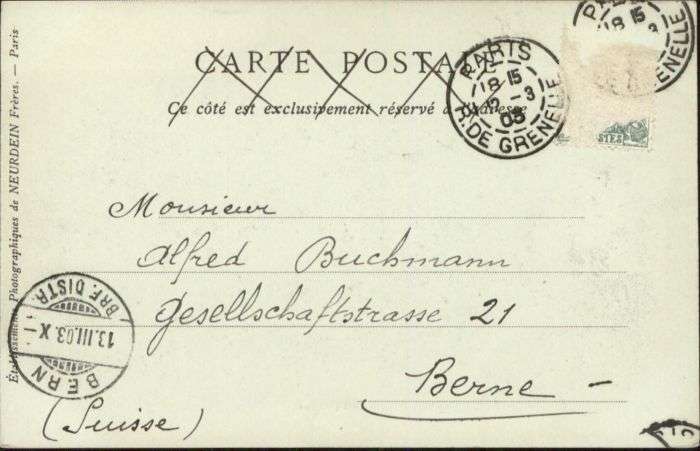 CARTE POSTALE
Ce côté est exclusivement réservé à l'adresse
PARIS
18 15
12 -3
03
R. DE GRENELLE
PA
18 15
-3
GRENELLE
STES
Monsieur
Alfred Buchmann
Gesellschaftstrasse 21
Berne –
(Suisse)
BRF. DISTR.
13.III.03.X–
BERN
Établissements Photographiques de NEURDEIN Frères. — Paris